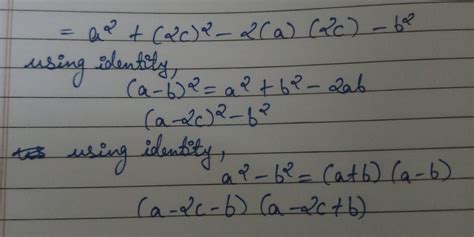 = a² + (2c)² - 2(a) (2c) - b²
using identity,
(a-b)² = a² + b² - 2ab
(a-2c)² - b²
using identity,
a² - b² = (a+b) (a-b)
(a-2c-b) (a-2c+b)